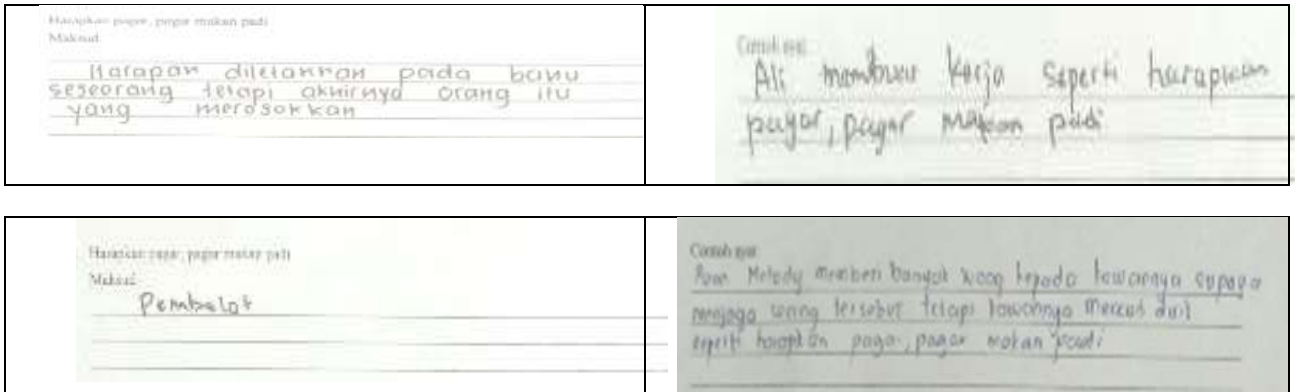 Harapkan pagar, pagar makan padi
Maksud
Harapan diletakkan pada bahu
seseorang tetapi akhirnya orang itu
yang merosakkan
Contoh ayat
Ali membuat kerja seperti harapkan
pagar, pagar makan padi
Harapkan pagar, pagar makan padi
Maksud
Pembelot
Contoh ayat
Puan Melody memberi banyak wang kepada kawannya supaya
menjaga wang tersebut tetapi kawannya mencuri duit
seperti harapkan pagar, pagar makan padi